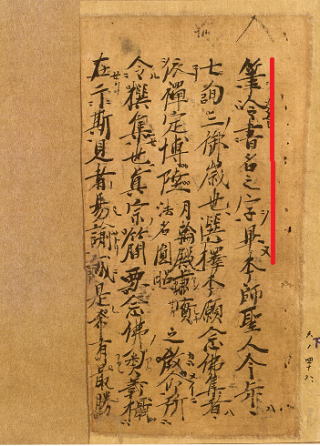 筆令書名之字畢本師聖人今年
七旬三御歳也選擇本願念佛集者
依禪定博陸月輪殿兼實法名圓照之教命所
令撰集也真宗簡要念佛奥義攝
在于斯見者易諭誠是希有最勝